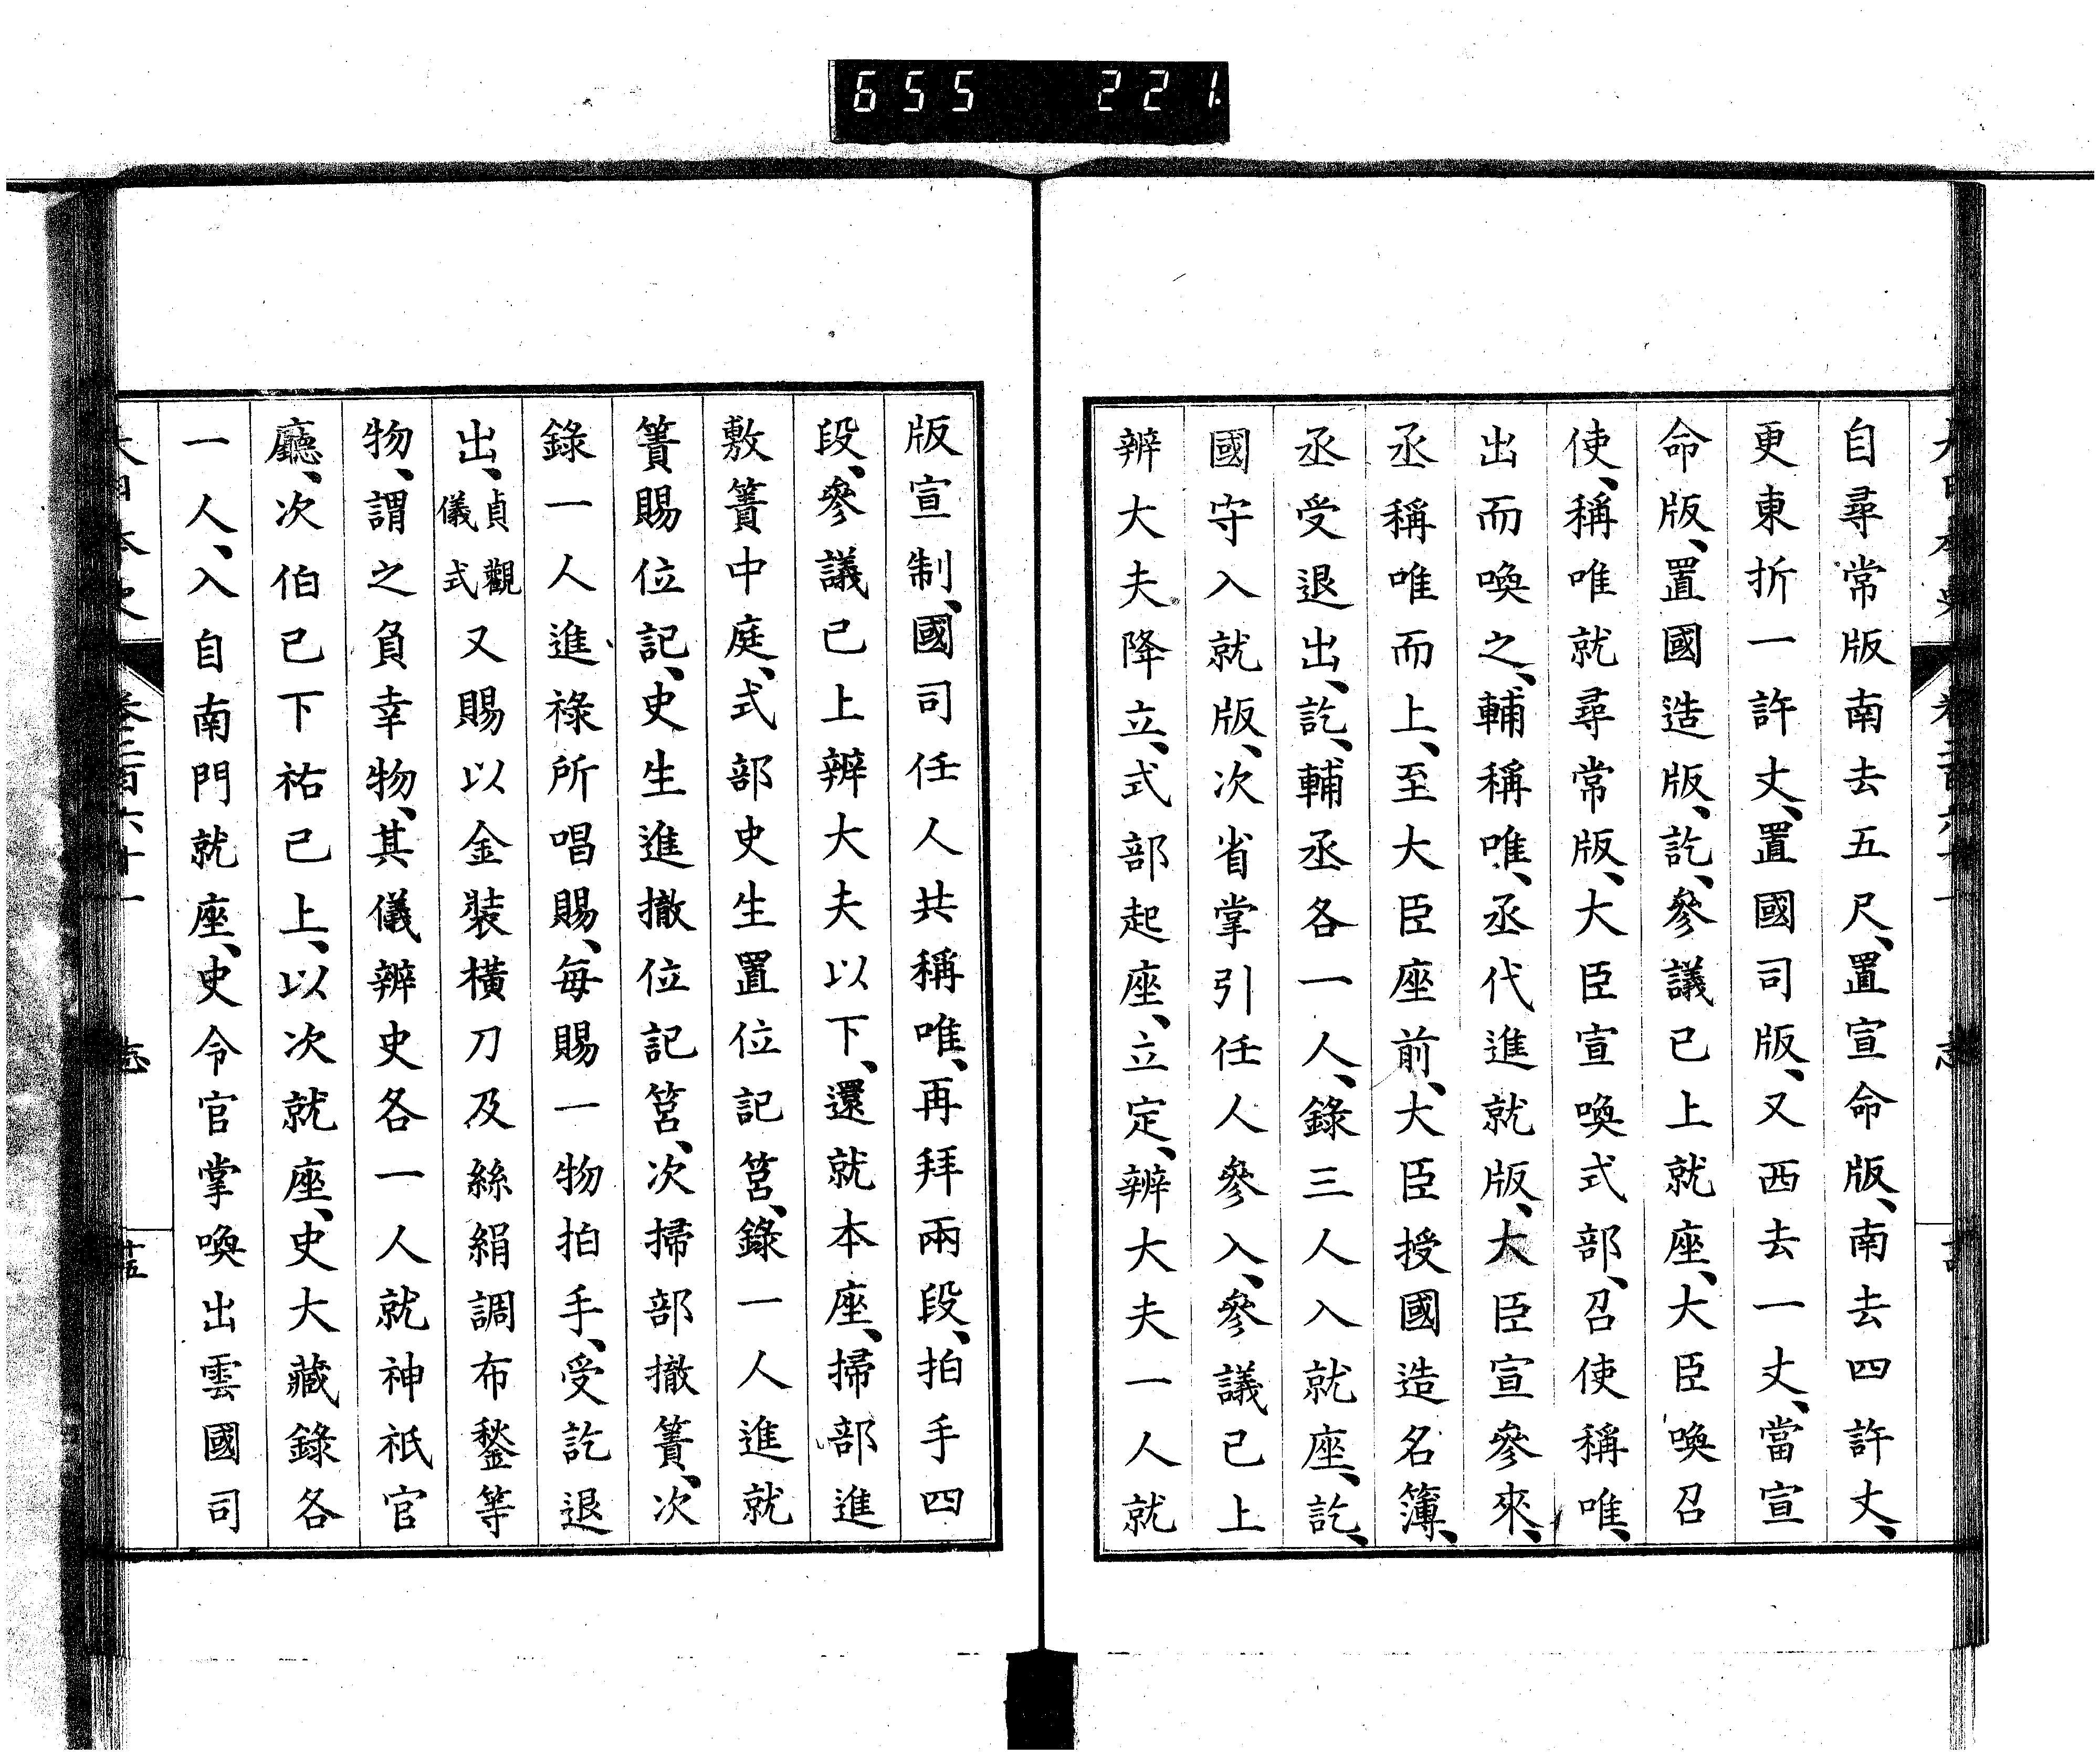 655 221
自尋常版南去五尺、置宣命版、南去四許丈、
更東折一許丈、置國司版、又西去一丈、當宣
命版、置國造版、訖、參議已上就座、大臣喚召
使、稱唯就尋常版、大臣宣喚式部、召使稱唯、
出而喚之、輔稱唯、丞代進就版、大臣宣參來、
丞稱唯而上、至大臣座前、大臣授國造名簿、
丞受退出、訖、輔丞各一人、錄三人入就座、訖、
國守入就版、次省掌引任人參入、參議已上
辨大夫降立、式部起座、立定、辨大夫一人就
版宣制、國司任人共稱唯、再拜兩段、拍手四
段、參議已上辨大夫以下、還就本座、掃部進
敷簀中庭、式部史生置位記筥、錄一人進就
簀賜位記、史生進撤位記筥、次掃部撤簀、次
錄一人進祿所唱賜、每賜一物拍手、受訖退
出、貞觀儀式又賜以金裝橫刀及絲絹調布鍫等
物、謂之負幸物、其儀辨史各一人就神祇官
廳、次伯已下祐已上、以次就座、史大藏錄各
一人、入自南門就座、史令官掌喚出雲國司
大日本史 卷二百六十一 志